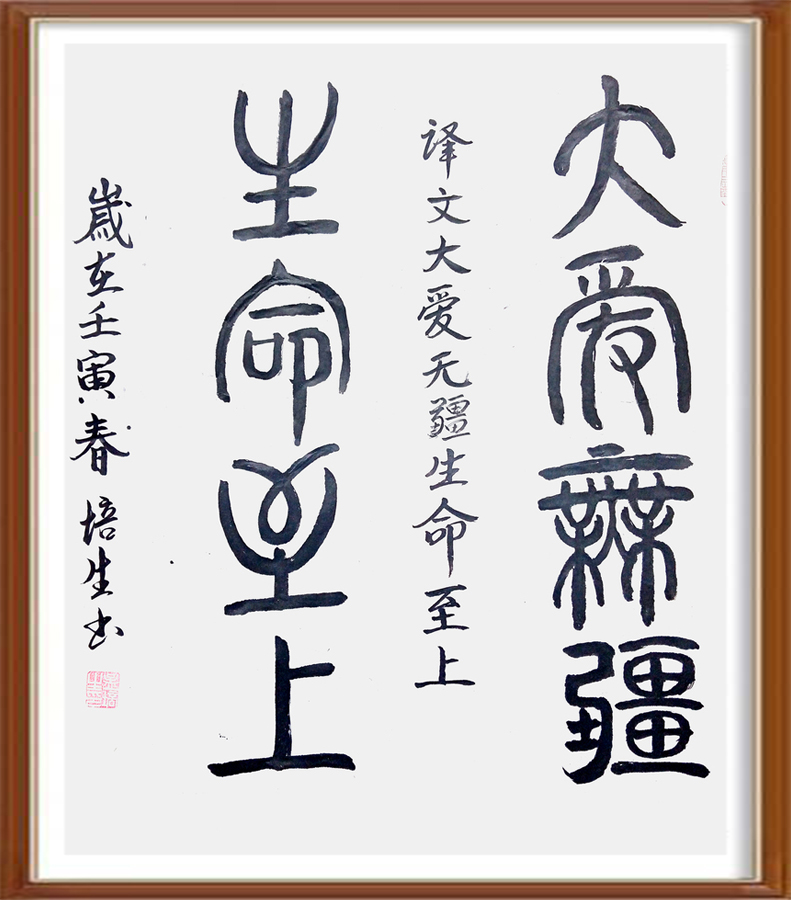 大爱無疆
译文大爱无疆生命至上
生命至上
歲在壬寅春 培生书